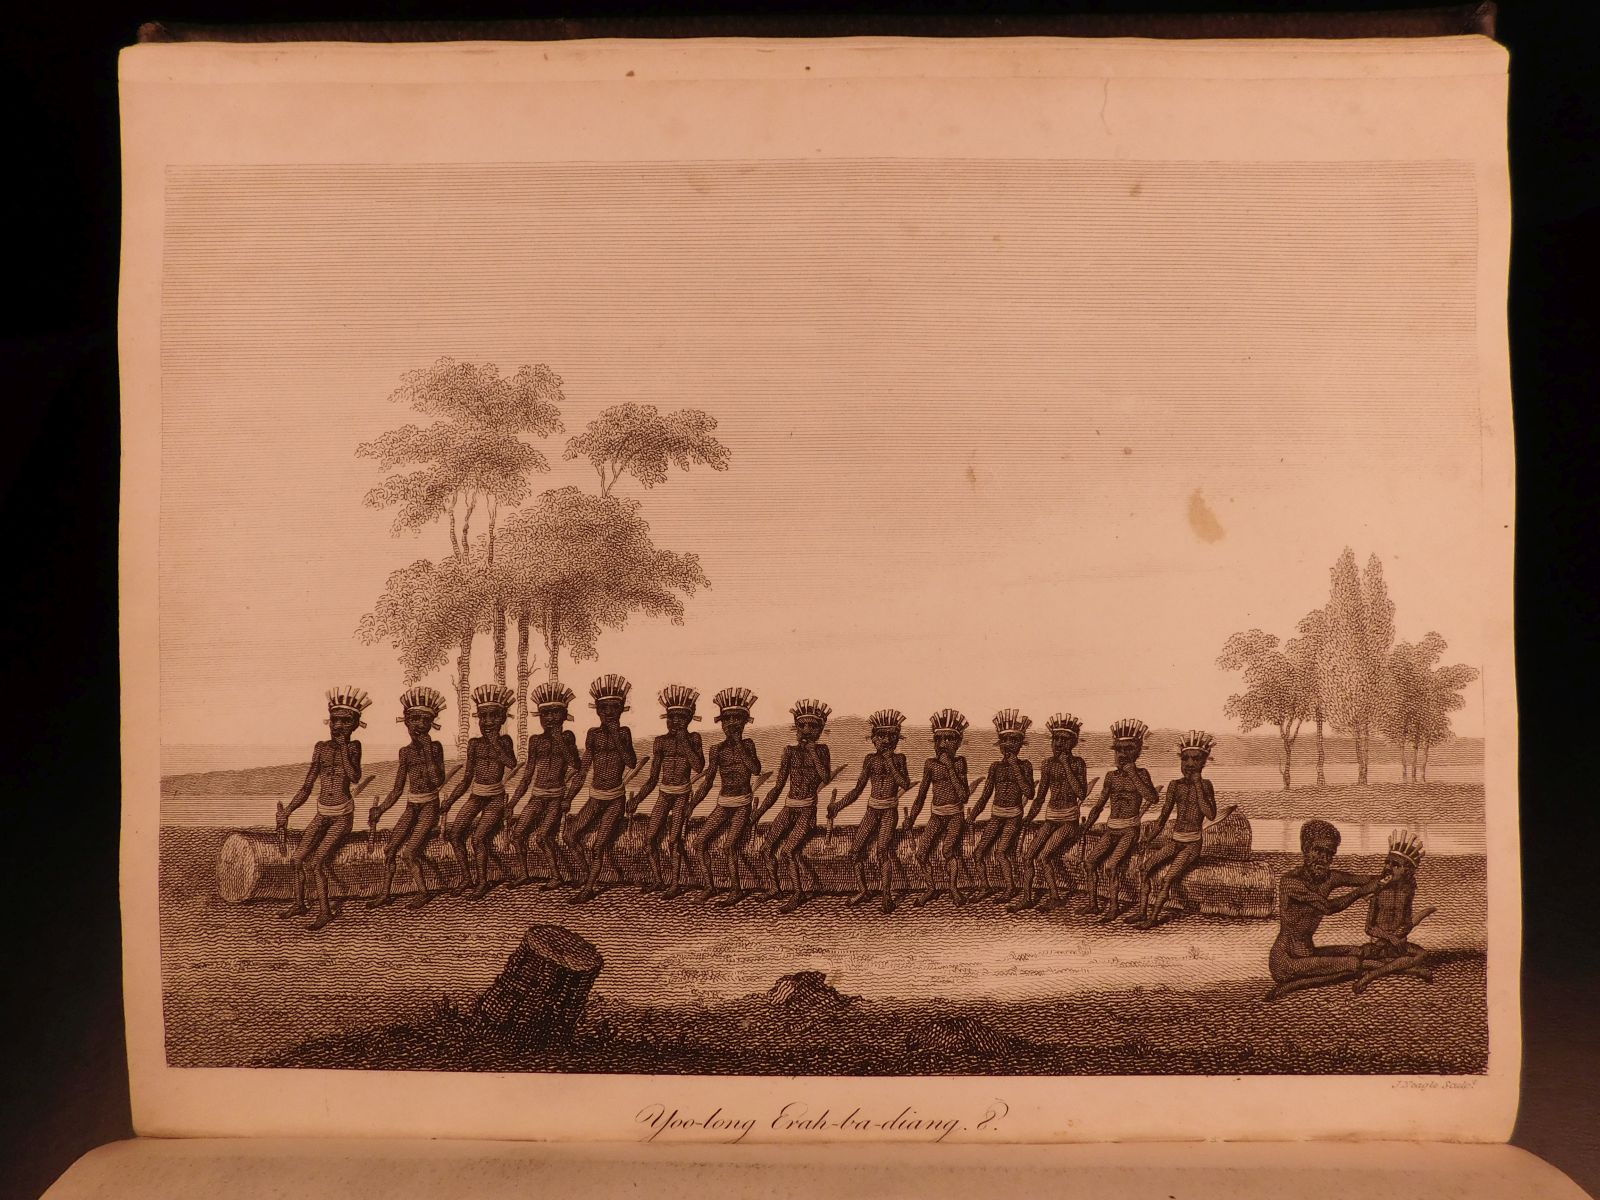 J. Neagle Sculp.t
Yoo-long Erah-ba-diang. 8.